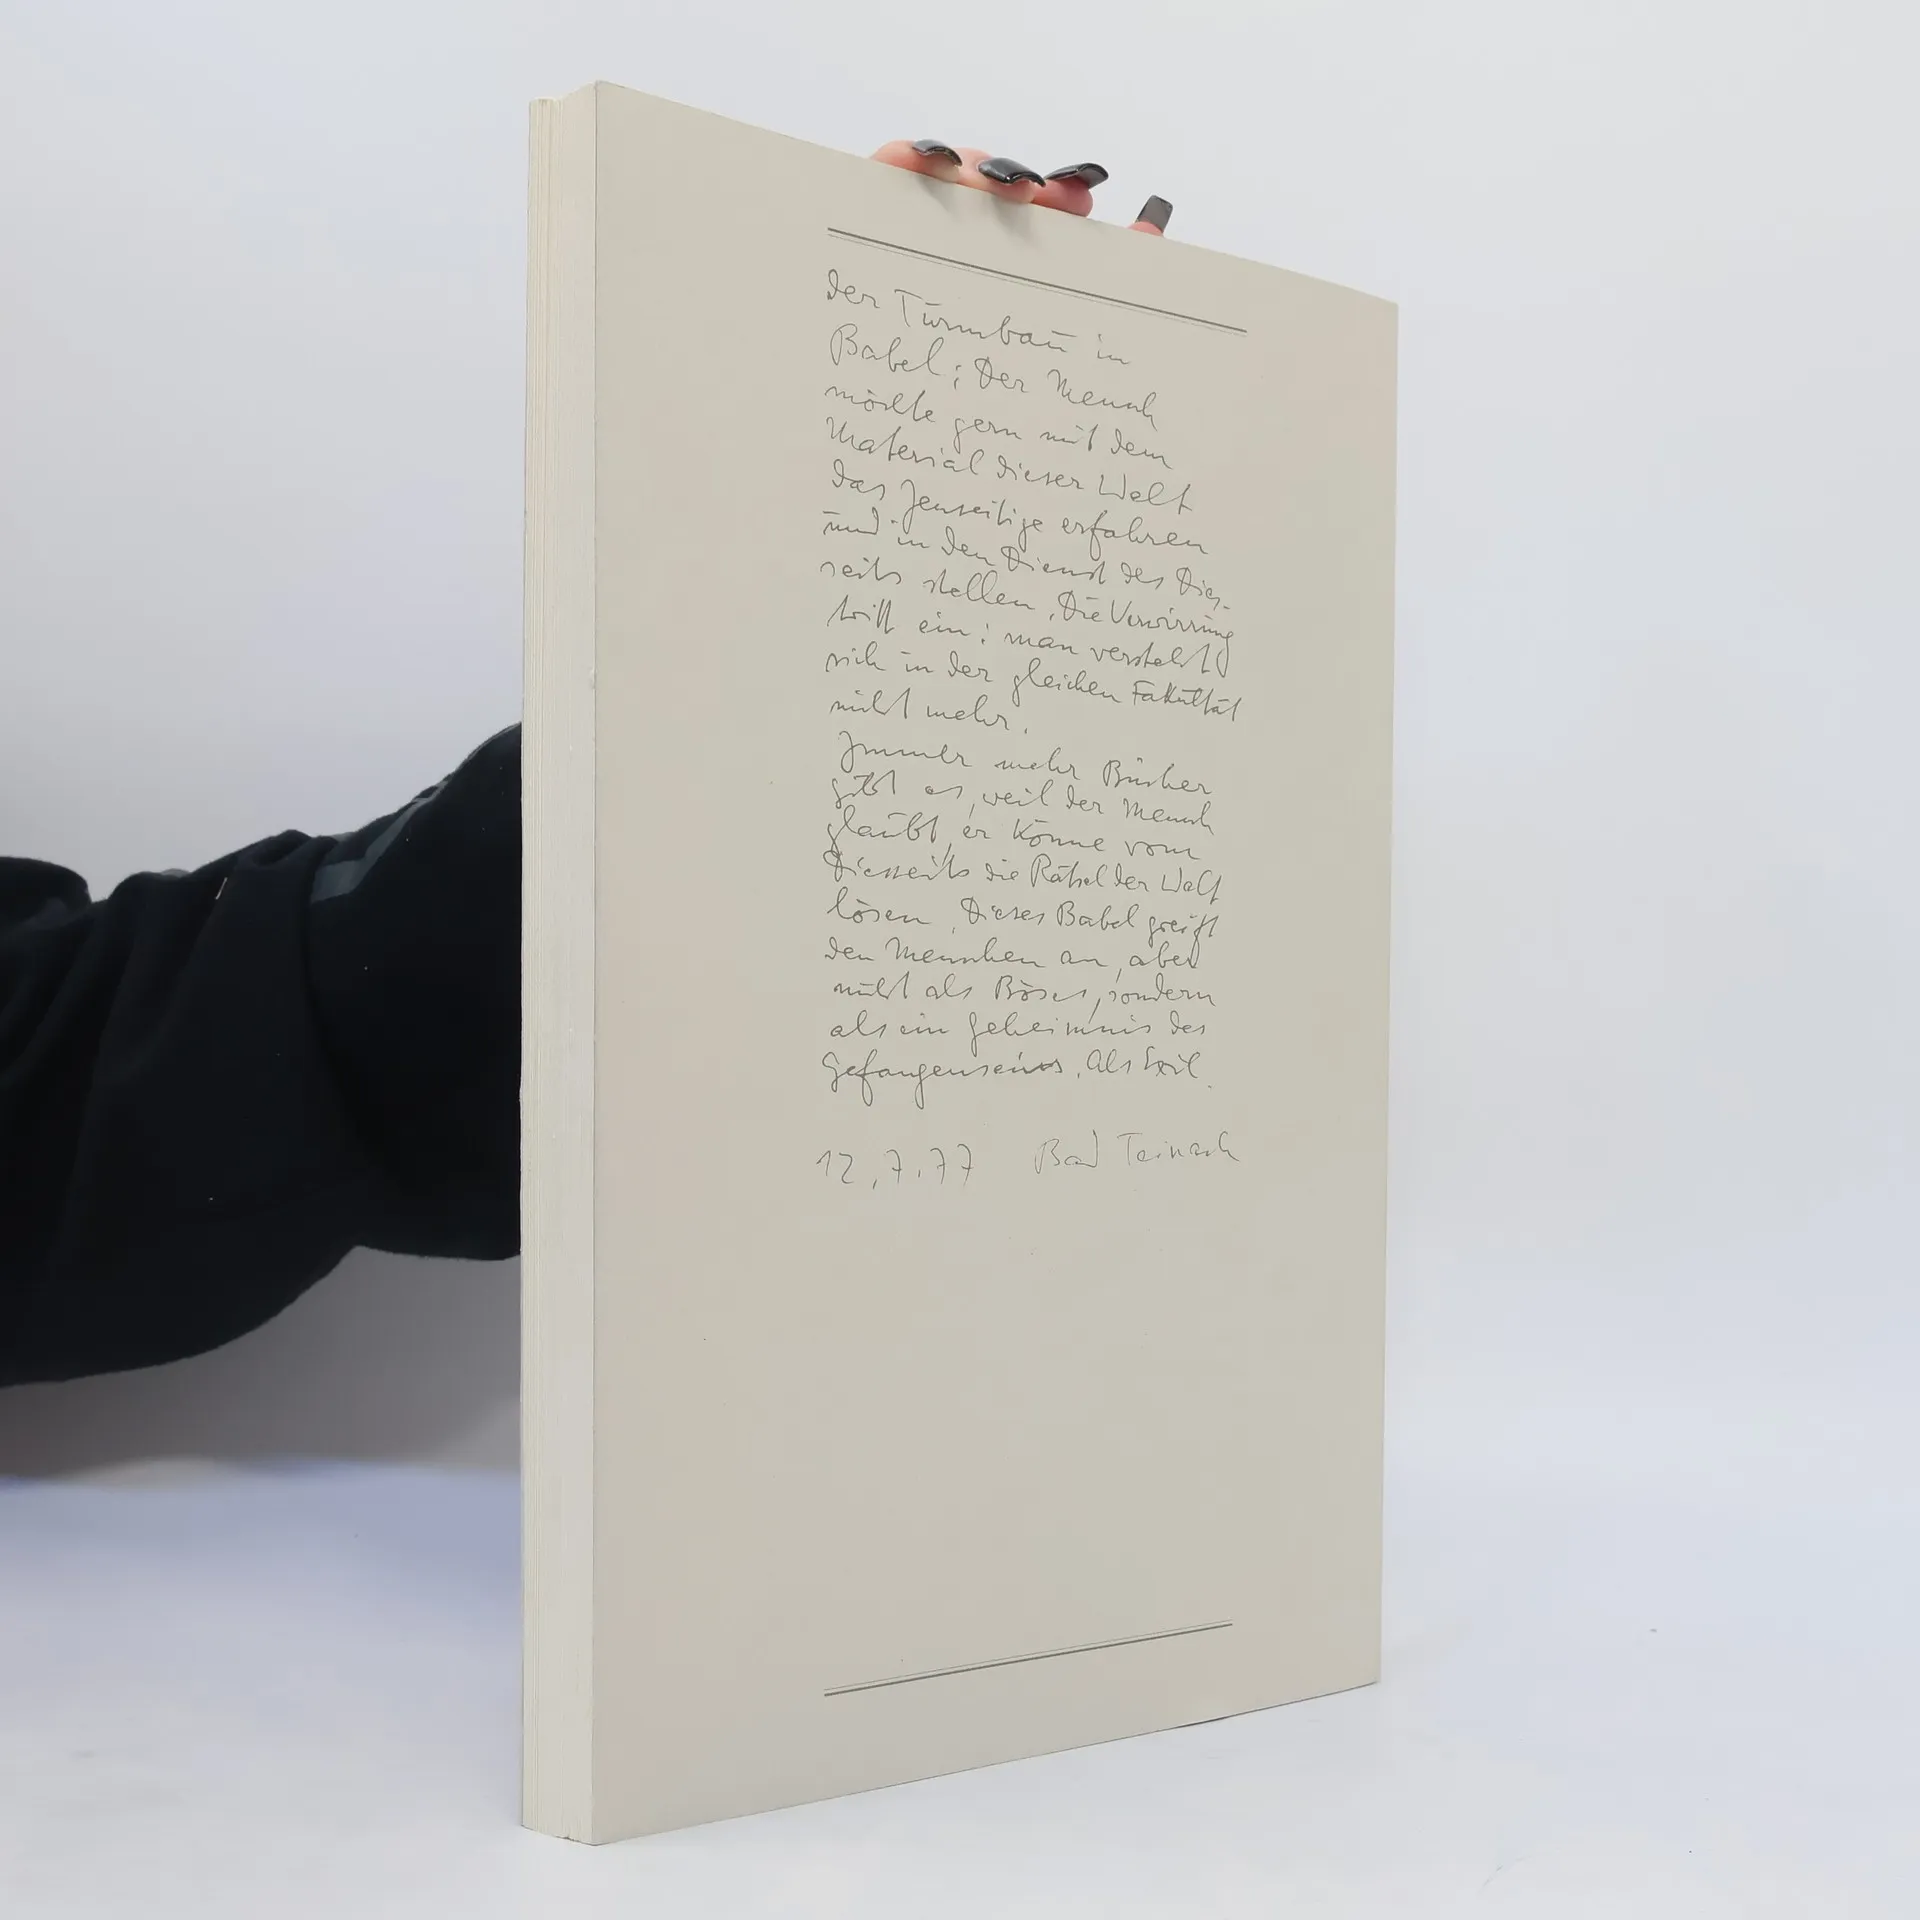 Der Turmbau in
Babel; Der Mensch
möchte gern mit dem
Material dieser Welt
das Jenseitige erfahren
und in den Dienst des Dies-
seits stellen. Die Verwirrung
tritt ein: man versteht
sich in der gleichen Fakultät
nicht mehr.
Immer mehr Bücher
gibt es, weil der Mensch
glaubt, er könne vom
Diesseits die Rätsel der Welt
lösen. Dieses Babel greift
den Menschen an, aber
nicht als Böses, sondern
als ein Geheimnis des
Gefangenseins. Als Exil.
12.7.77 Bad Teinach